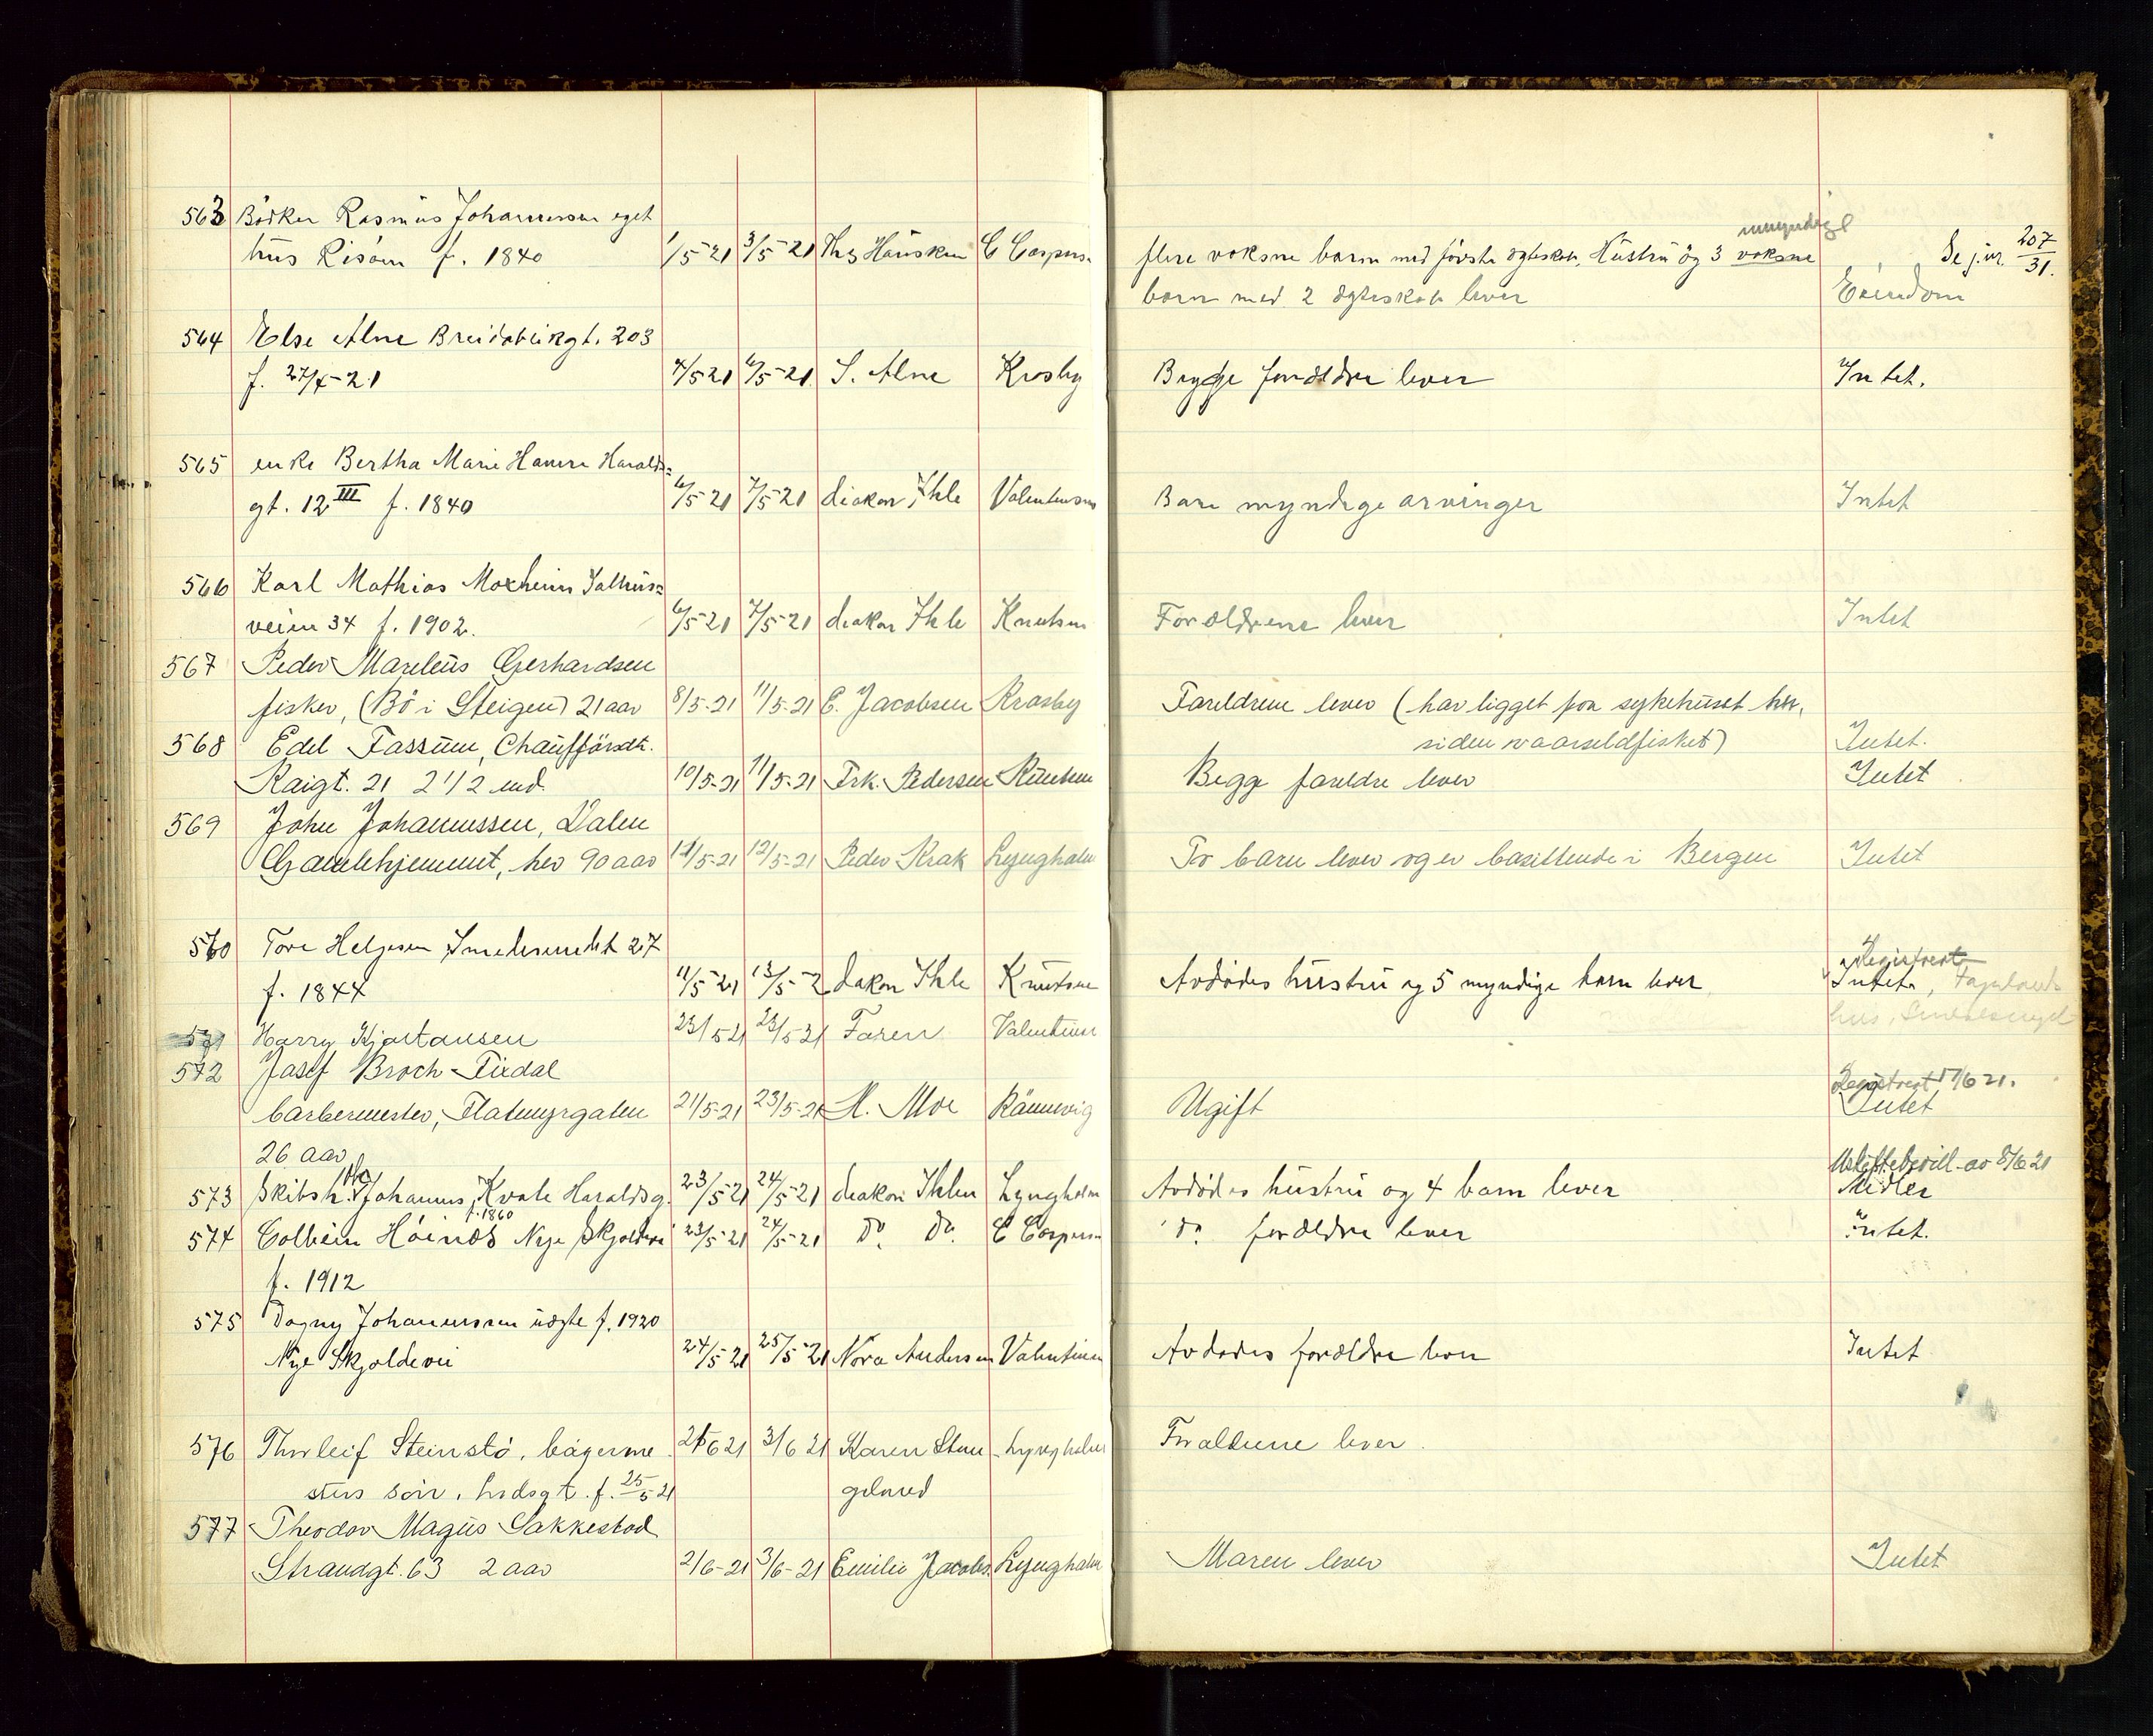 563 Bödker Rasmus Johannessen eget
hus Risöen f. 1840 1/5 21 3/5 21 Ths Hausken C Caspers. flere voksne barn med förste ægteskap. Hustru og 3 voksne umyndige Se j.nr. 207/31.
barn med 2 ægteskap lever Eiendom
564 Else Alne Breidablikgt. 203
f. 27/4-21 4/5 21 6/5-21 S. Alne Krosby Begge forældre lever Intet.
565 enke Bertha Marie Hamre Haralds=
gt. 12 III f. 1840 6/5 21 7/5 21 diakon Ihle Valentinsen Bare myndige arvinger Intet
566 Karl Mathias Moxheim Salhus=
veien 34 f. 1902. 6/5 21 7/5-21 diakon Ihle Knutsen Forældrene lever Intet
567 Peder Mareleus Gerhardsen
fisker, (Bö i Steigen) 21 aar 8/5-21 11/5-21 E. Jacobsen Krosby Foreldrene lever (har ligget paa sykehuset her.
siden vaarsildfisket) Intet.
568 Edel Fassum, Chaufförsdt.
Kaigt. 21 2 1/2 md. 10/5-21 11/5-21 Frk. Pedersen Knutsen Begge foreldre lever Intet
569 John Johannessen, Valen
Gamlehjemmet, her 90 aar 11/5-21 12/5-21 Peder Krak Lyngholm To barn lever og er bosittende i Bergen Intet
570 Tore Helgesen Smedesundet 27
f. 1844 11/5-21 13/5-2 diakon Ihle Knutsen Avdödes hustru og 5 myndige barn lever Registrert
Intet,
hus,
571 Harry Kjartansen 23/5 21 23/5 21 Faren Valentinsen
572 Josef Broch Tirdal
barbermester, Flatmyrgaten 21/5-21 23/5-21 H. Moe Rännevig Ugift Registrert 17/6 21. Intet
26 aar
573 Skibsh. Johannes Kvale Haraldsg. f. 1860 23/5 21 24/5-21 diakon Ihlen Lyngholm Avdödes hustru og 4 barn lever Uskiftebevill. av 8/6 21 Midler
574 Colbein Höines Nye Skjoldevei 23/5-21 24/5-21 Do. Do. C Caspersen Do. forældre lever Intet.
f. 1912
575 Dagny Johannessen uægte f. 1920
Nye Skjoldevei 24/5 21 25/5-21 Nora Andersen Valentinsen Avdödes forældre lever Intet
576 Thorleif Steinstö, bagerme 2/6 21 3/6 21 Karen Stan Lyngholm Forældrene lever.
sters sön, hrdsgt. f. 25/5 21 geland
577 Theodor Magus Sakkestad
Strandgt. 63 2 aar 2/6-21 3/6-21 Emilie Jacobs. Lyngholm Moren lever Intet